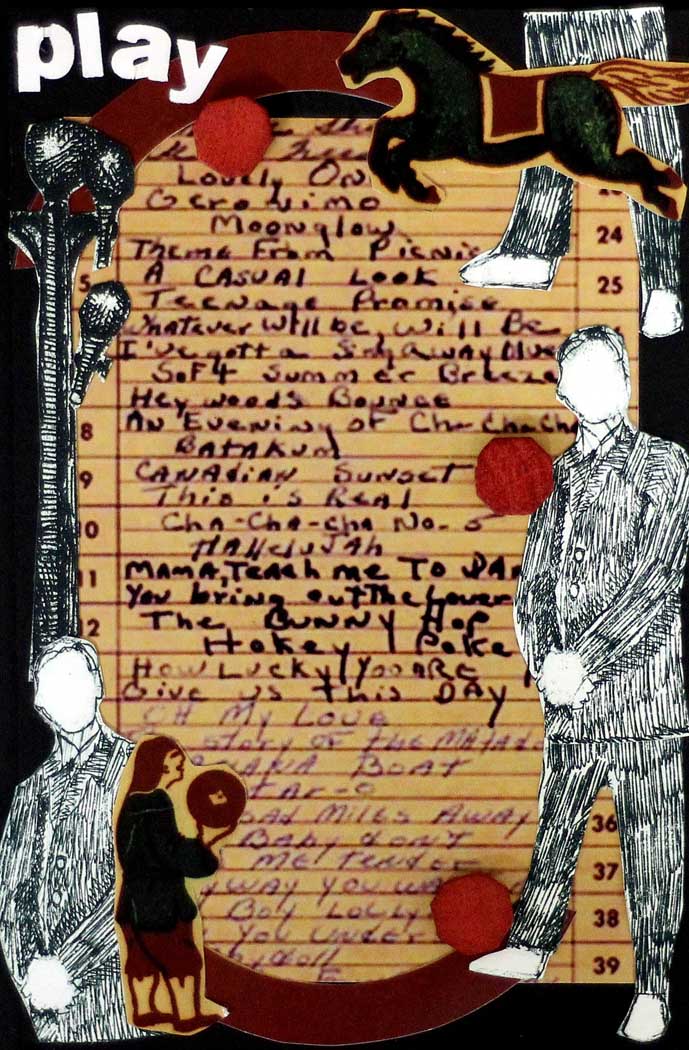 play
Lovely On
Geronimo
Moonglow
24
Theme From Picnic
A CASUAL LOOK
5
25
Teenage Promise
Whatever Will be, Will Be
I've gotta Sing Away Blues
Soft Summer Breeze
Hey woods Bounce
An Evening of Cha-Cha-Cha
8
BATAKUM
CANAdian Sunset
9
This is Real
Cha-Cha-cha No. 5
0
HAllelujah
MAMA, Teach me To DAN
11
You bring out The Lover
The Bunny Hop
12
Hokey Poke
How Lucky You ARE
Give us This DAY
OH My Love
Story of the
BOAT
TAR-O
Miles Away
36
Baby don't
me Tender
37
way you
Boy
38
You
39